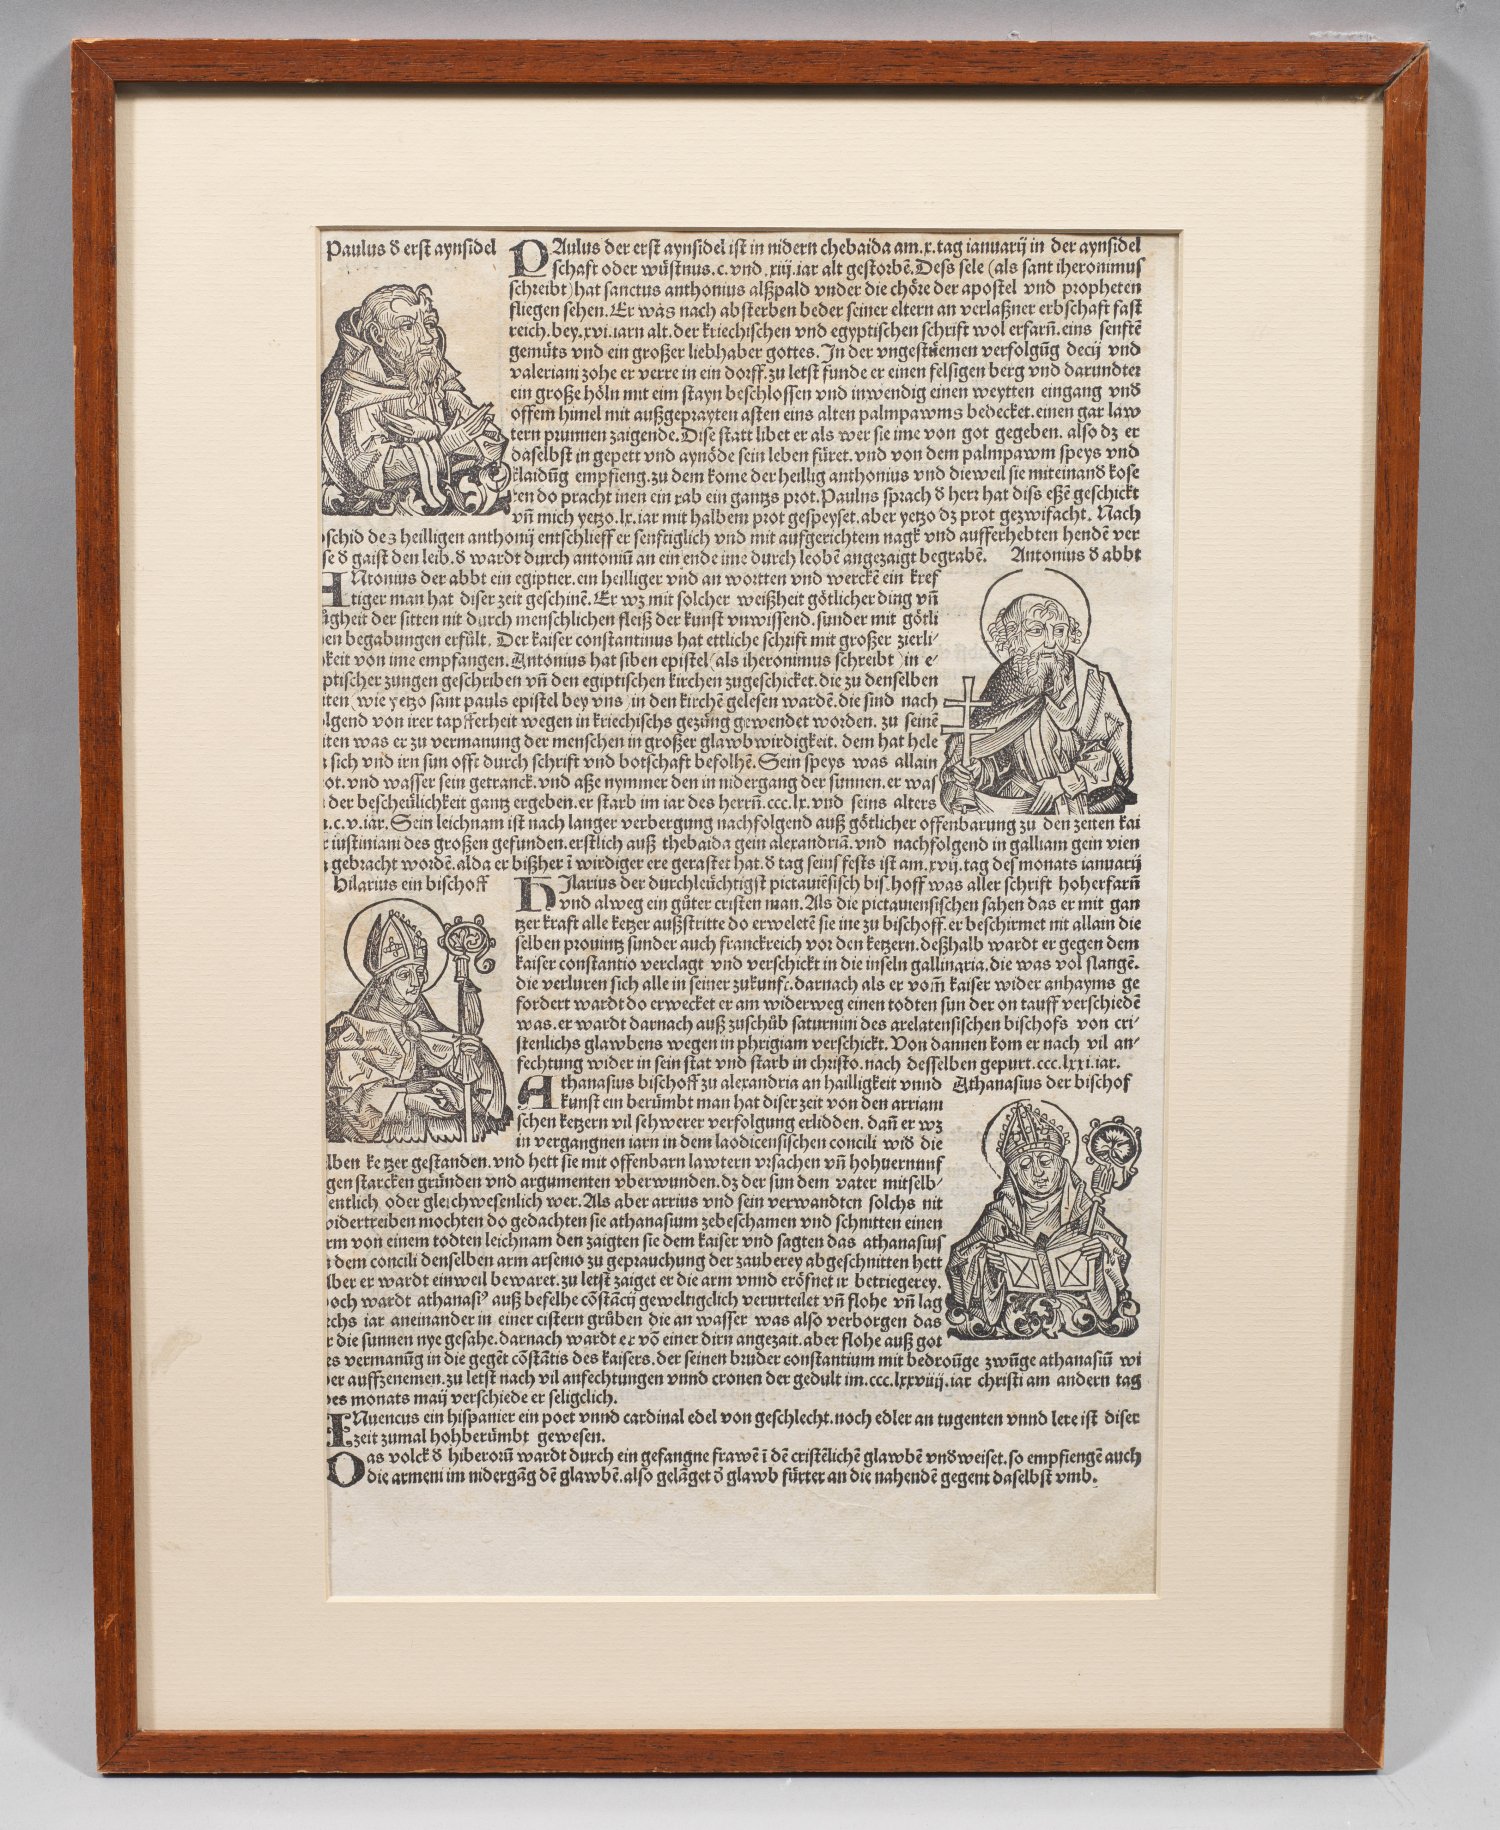 Paulus d̕ erst aynsidel
PAulus der erst aynsidel ist in nidern thebaida am .x. tag ianuarij in der aynsidel
schaft oder wüstnus .c. vnd .xiij. iar alt gestorbē. Dess sele (als sant iheronimus
schreibt) hat sanctus anthonius alßpald vnder die chöre der apostel vnd propheten
fliegen sehen. Er was nach absterben beder seiner eltern an verlaßner erbschaft fast
reich. bey .xvi. iarn alt. der kriechischen vnd egyptischen schrift wol erfarn̄. eins senftē
gemüts vnd ein großer liebhaber gottes. In der vngestüemen verfolgūg decij vnd
valeriani zohe er verre in ein dorff. zu letst funde er einen felsigen berg vnd darundter
ein große höln mit eim stayn beschlossen vnd inwendig einen weytten eingang vnd̕
offem himel mit außgeprayten asten eins alten palmpawms bedecket. einen gar law
tern prunnen zaigende. Dise statt libet er als wer sie ime von got gegeben. also dz er
daselbst in gepett vnd aynöde sein leben füret. vnd von dem palmpawm speys vnd
klaidūg empfieng. zu dem kome der heillig anthonius vnd dieweil sie miteinand̕ kose
ten do pracht inen ein rab ein gantzs prot. Paulus sprach d̕ herr hat diss eßē geschickt
vn̄ mich yetzo .lx. iar mit halbem prot gespeyset. aber yetzo dz prot gezwifacht. Nach
schid des heilligen anthonij entschlieff er senftiglich vnd mit aufgerichtem nagk vnd aufferhebten hendē ver
se d̕ gaist den leib. d̕ wardt durch antoniū an ein ende ime durch leobē angezaigt begrabē.
Antonius d̕ abbt
ANtonius der abbt ein egiptier. ein heilliger vnd an wortten vnd werckē ein kref
tiger man hat diser zeit geschinē. Er wz mit solcher weißheit götlicher ding vn̄
ügheit der sitten nit durch menschlichen fleiß der kunst vnwissend. sunder mit götli
en begabungen erfült. Der kaiser constantinus hat ettliche schrift mit großer zierli-
keit von ime empfangen. Antonius hat siben epistel (als iheronimus schreibt) in e-
ptischer zungen geschriben vn̄ den egiptischen kirchen zugeschicket. die zu denselben
iten (wie yetzo sant pauls epistel bey vns) in den kirchē gelesen wardē. die sind nach
lgend von irer tapfferheit wegen in kriechischs gezüng gewendet worden. zu seinē
iten was er zu vermanung der menschen in großer glawbwirdigkeit. dem hat hele
sich vnd irn sun offt durch schrift vnd botschaft befolhē. Sein speys was allain
ot. vnd wasser sein getranck. vnd aße nymmer den in nidergang der sunnen. er was
der bescheülichkeit gantz ergeben. er starb im iar des herrn̄ .ccc.lx. vnd seins alters
.c.v. iar. Sein leichnam ist nach langer verbergung nachfolgend auß götlicher offenbarung zu den zeiten kai
iustiniani des großen gefunden. erstlich auß thebaida gein alexandriā. vnd nachfolgend in galliam gein vien
gebracht wordē. alda er bißher ī wirdiger ere gerastet hat. d̕ tag seins fests ist am .xvij. tag des monats ianuarij
Hilarius ein bischoff
HIlarius der durchleüchtigst pictauiēsisch bischoff was aller schrift hoherfarn̄
vnd alweg ein güter cristen man. Als die pictauiensischen sahen das er mit gan
tzer kraft alle ketzer außstritte do erweletē sie ine zu bischoff. er beschirmet nit allain die
selben prouintz sunder auch franckreich vor den ketzern. deßhalb wardt er gegen dem
kaiser constantio verclagt vnd verschickt in die inseln gallinaria. die was vol slangē.
die verluren sich alle in seiner zukunft. darnach als er vom̄ kaiser wider anhayms ge
fordert wardt do erwecket er am widerweg einen todten sun der on tauff verschiedē
was. er wardt darnach auß zuschüb saturnini des arelatensischen bischofs von cri-
stenlichs glawbens wegen in phrigiam verschickt. Von dannen kom er nach vil an-
fechtung wider in sein stat vnd starb in christo. nach desselben gepurt .ccc.lxxi. iar.
Athanasius der bischof
Athanasius bischoff zu alexandria an hailligkeit vnnd
kunst ein berümbt man hat diser zeit von den arriani
schen ketzern vil schwerer verfolgung erlidden. dan̄ er wz
in vergangnen iarn in dem laodicensischen concili wid̕ die
lben ketzer gestanden. vnd hett sie mit offenbarn lawtern vrsachen vn̄ hohuernunf
gen starcken gründen vnd argumenten vberwunden. dz der sun dem vater mitselb-
entlich oder gleichwesenlich wer. Als aber arrius vnd sein verwandten solchs nit
widertreiben mochten do gedachten sie athanasium zebeschamen vnd schnitten einen
rm von einem todten leichnam den zaigten sie dem kaiser vnd sagten das athanasius
dem concili denselben arm arsenio zu geprauchung der zauberey abgeschnitten hett
lber er wardt einweil bewaret. zu letst zaiget er die arm vnnd eröfnet ir betriegerey.
och wardt athanasiꝰ auß befelhe cōstācij geweltigclich verurteilet vn̄ flohe vn̄ lag
chs iar aneinander in einer cistern grüben die an wasser was also verborgen das
r die sunnen nye gesahe. darnach wardt er vō einer dirn angezait. aber flohe auß got
es vermanūg in die gegēt cōstātis des kaisers. der seinen bruder constantium mit bedroūge zwūge athanasiū wi
er auffzenemen. zu letst nach vil anfechtungen vnnd cronen der gedult im .ccc.lxxviiij. iar christi am andern tag
des monats maij verschiede er seligclich.
INuencus ein hispanier ein poet vnnd cardinal edel von geschlecht. noch edler an tugenten vnnd lere ist diser
zeit zumal hohberümbt gewesen.
Das volck d̕ hiberorū wardt durch ein gefangne frawē ī dē cristēlichē glawbē vnd̕weiset. so empfiengē auch
die armeni im nidergāg dē glawbē. also gelāget d̕ glawb fürter an die nahendē gegent daselbst vmb.